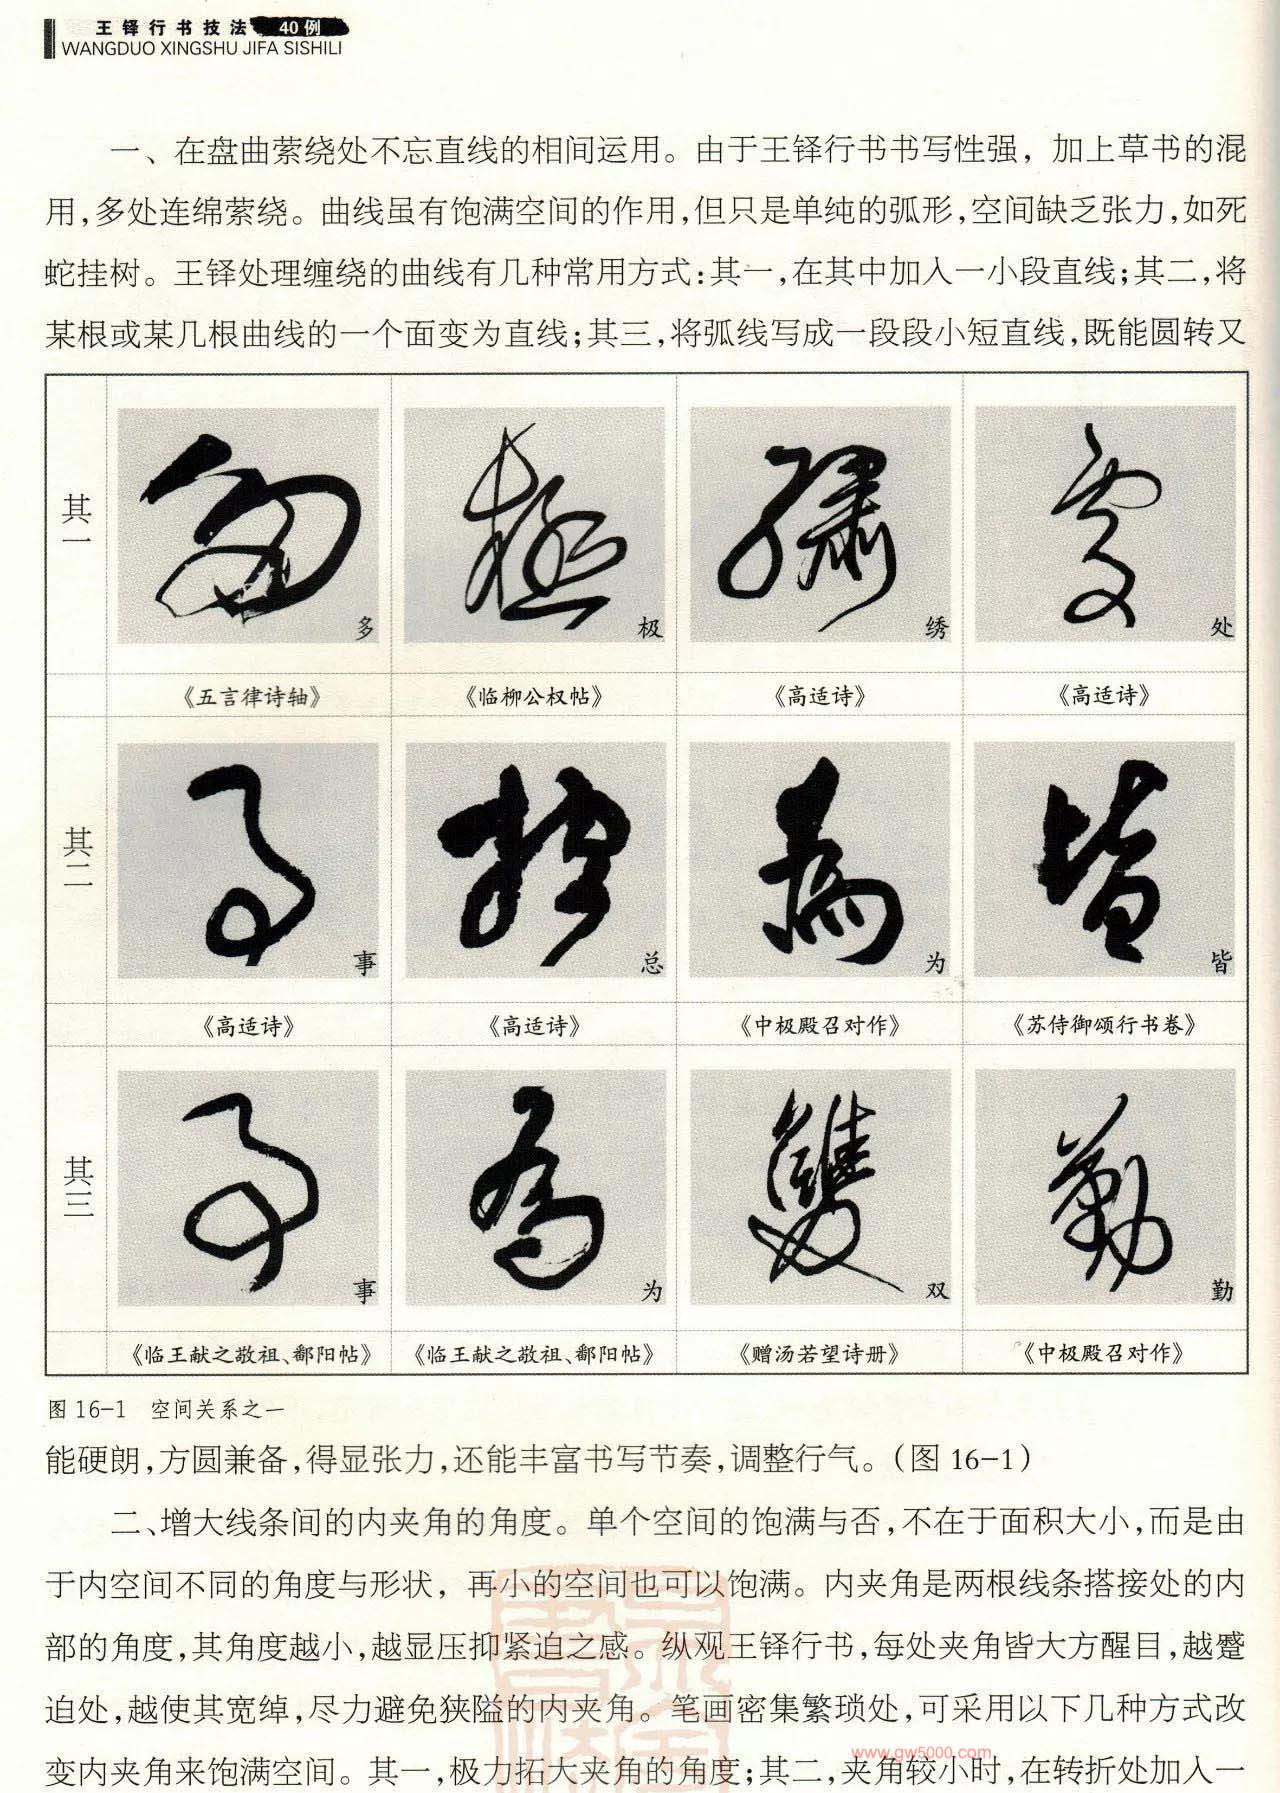 王铎行书技法 40例
WANGDUO XINGSHU JIFA SISHILI
一、在盘曲萦绕处不忘直线的相间运用。由于王铎行书书写性强，加上草书的混
用，多处连绵萦绕。曲线虽有饱满空间的作用，但只是单纯的弧形，空间缺乏张力，如死
蛇挂树。王铎处理缠绕的曲线有几种常用方式：其一，在其中加入一小段直线；其二，将
某根或某几根曲线的一个面变为直线；其三，将弧线写成一段段小短直线，既能圆转又
其一
多 极 绣 处
《五言律诗轴》 《临柳公权帖》 《高适诗》 《高适诗》
其二
事 总 为 皆
《高适诗》 《高适诗》 《中极殿召对作》 《苏侍御颂行书卷》
其三
事 为 双 勤
《临王献之敬祖、鄱阳帖》 《临王献之敬祖、鄱阳帖》 《赠汤若望诗册》 《中极殿召对作》
图 16-1 空间关系之一
能硬朗，方圆兼备，得显张力，还能丰富书写节奏，调整行气。（图 16-1）
二、增大线条间的内夹角的角度。单个空间的饱满与否，不在于面积大小，而是由
于内空间不同的角度与形状，再小的空间也可以饱满。内夹角是两根线条搭接处的内
部的角度，其角度越小，越显压抑紧迫之感。纵观王铎行书，每处夹角皆大方醒目，越蹙
迫处，越使其宽绰，尽力避免狭隘的内夹角。笔画密集繁琐处，可采用以下几种方式改
www.gw5000.com
变内夹角来饱满空间。其一，极力拓大夹角的角度；其二，夹角较小时，在转折处加入一